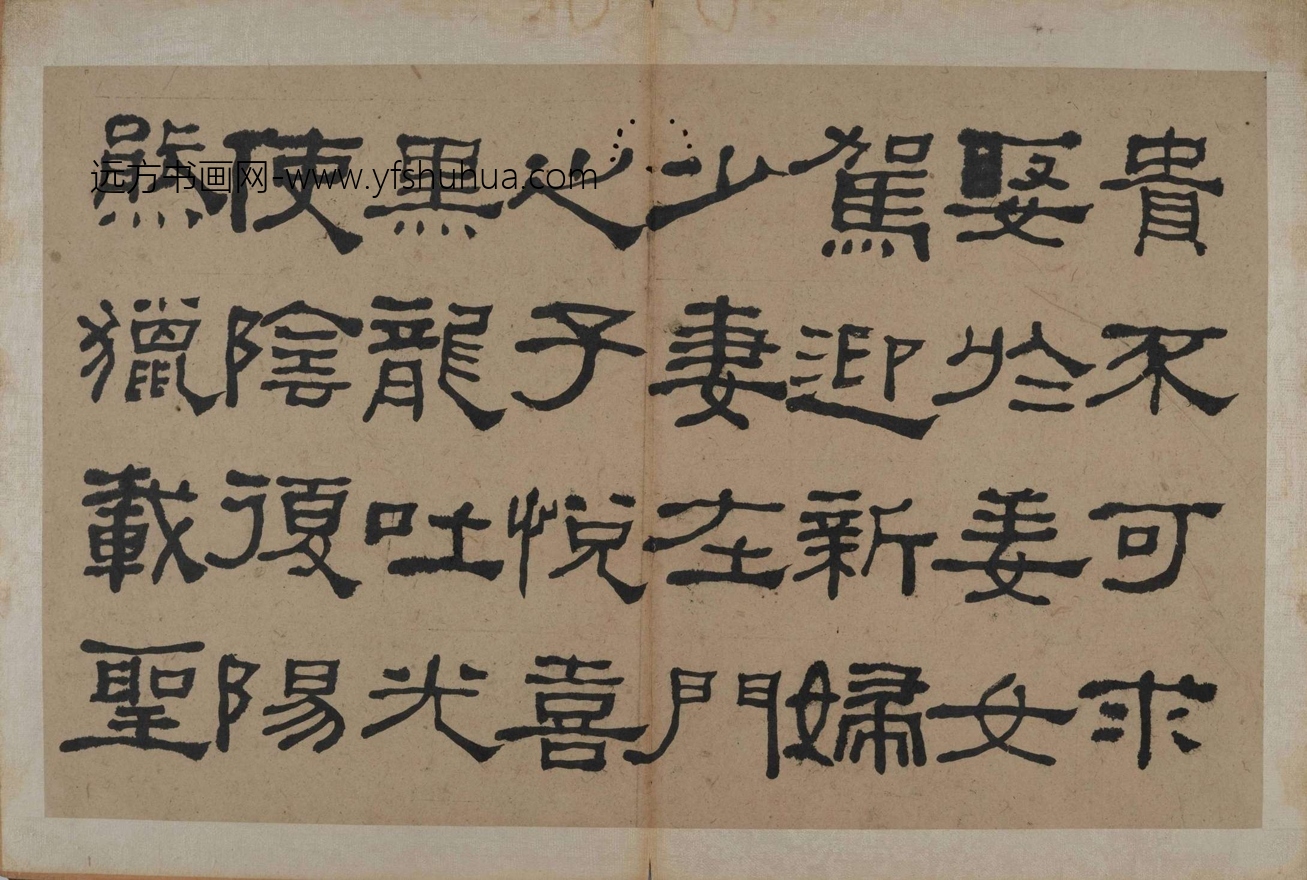 貴不可求
娶於姜女
駕迎新婦
少妻在門
心子悅喜
黑龍吐光
使陰復陽
獵載聖
远方书画网-www.yfshuhua.com